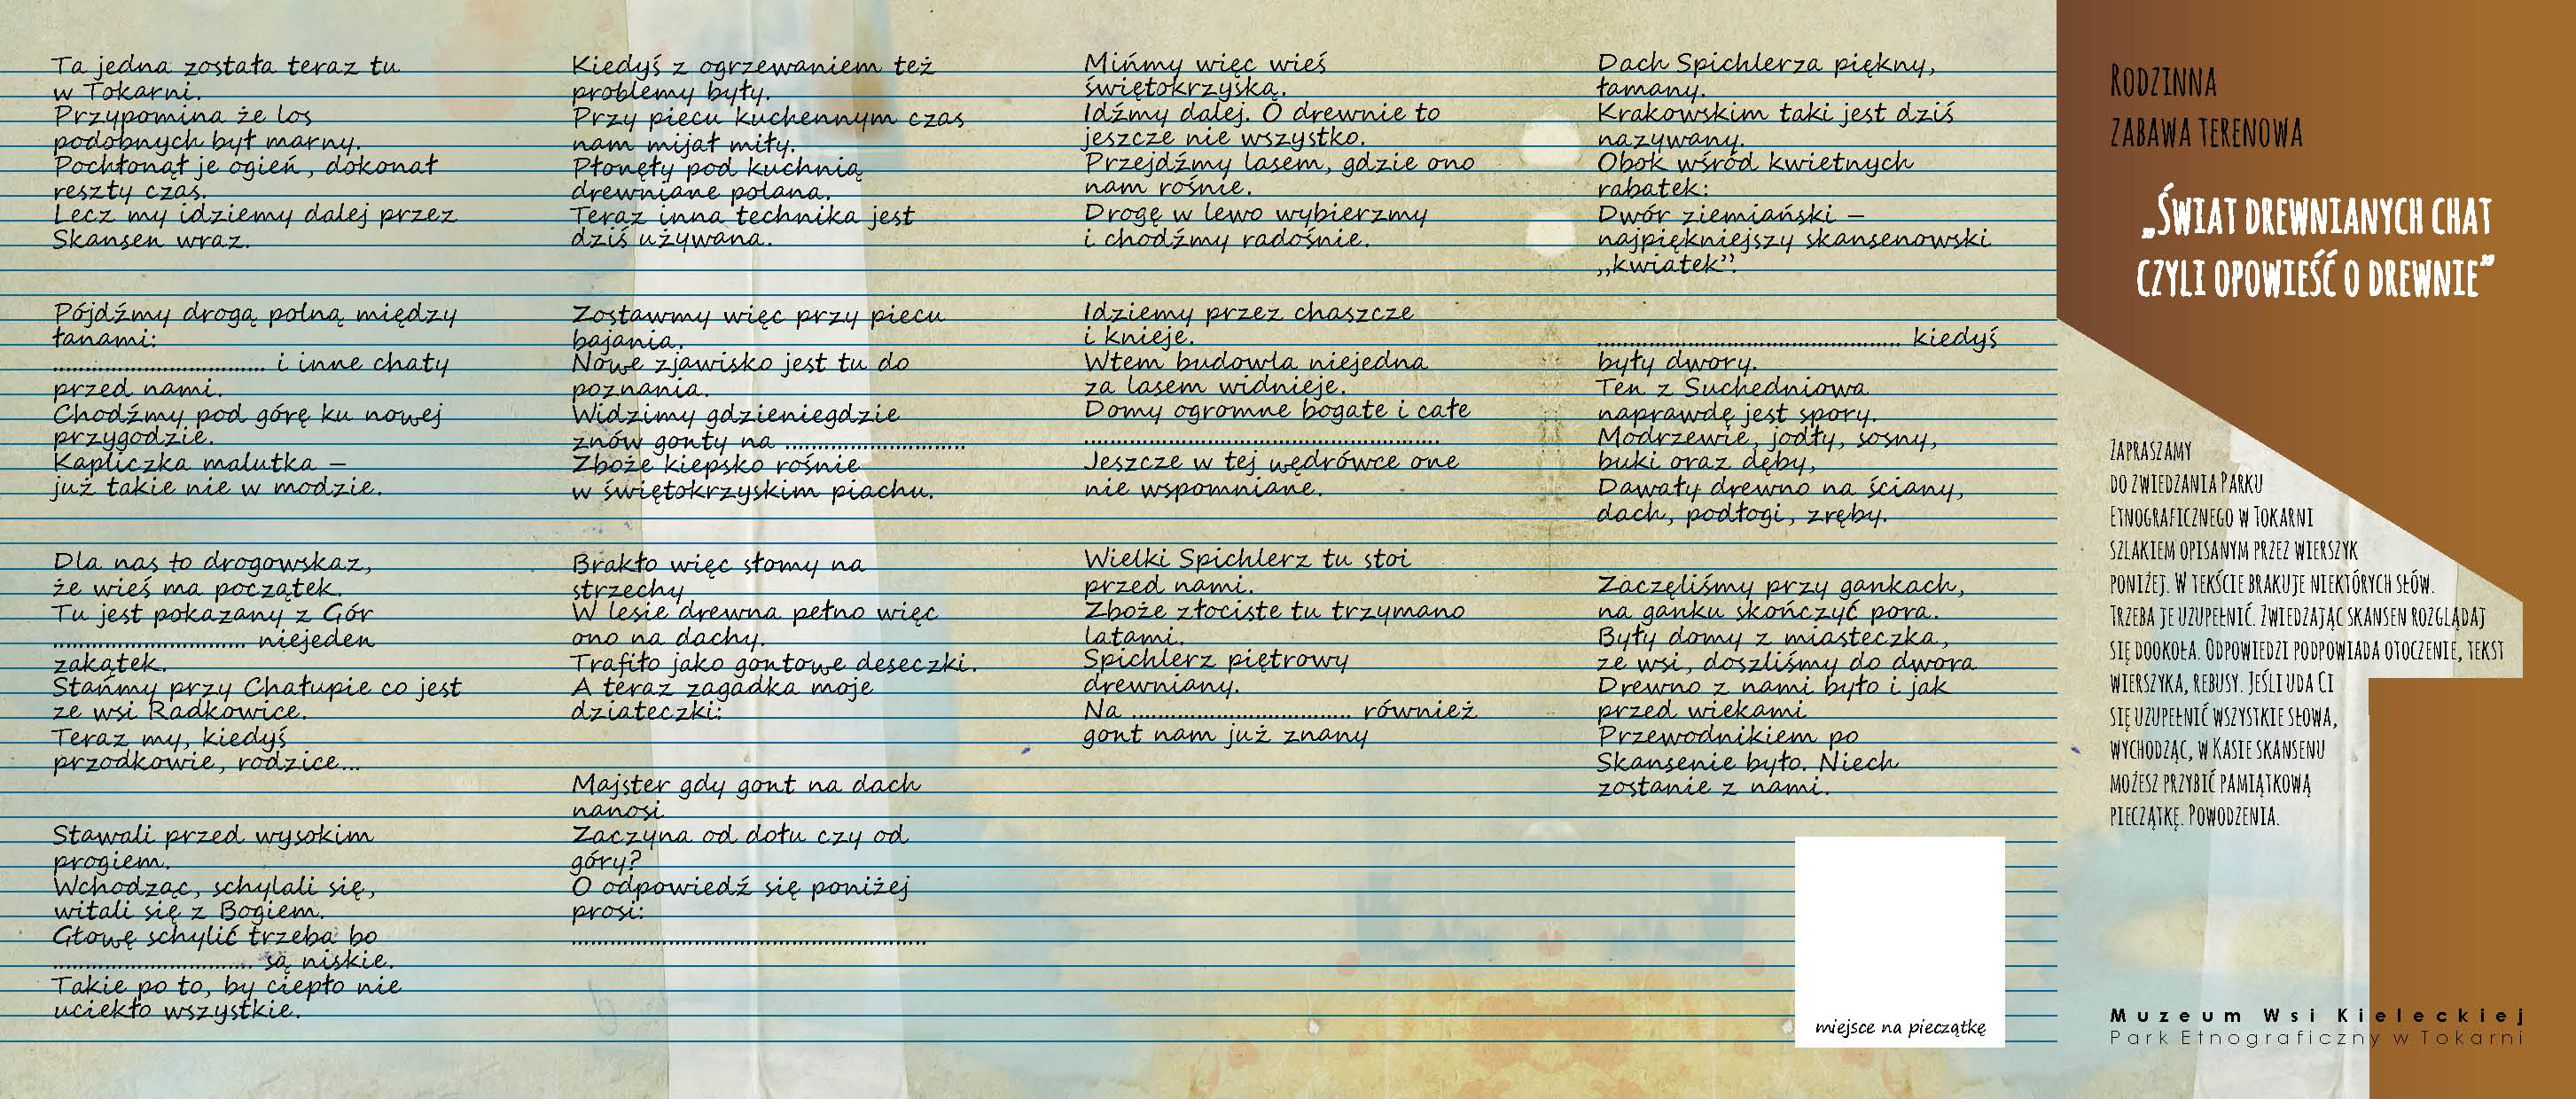 Ta jedna została teraz tu
w Tokarni.
Przypomina że los
podobnych był marny.
Pochłonął je ogień, dokonał
reszty czas.
Lecz my idziemy dalej przez
Skansen wraz.
Pójdźmy drogą polną między
łanami:
................................. i inne chaty
przed nami.
Chodźmy pod górę ku nowej
przygodzie.
Kapliczka malutka –
już takie nie w modzie.
Dla nas to drogowskaz,
że wieś ma początek.
Tu jest pokazany z Gór
.............................. niejeden
zakątek.
Stańmy przy Chałupie co jest
ze wsi Radkowice.
Teraz my, kiedyś
przodkowie, rodzice...
Stawali przed wysokim
progiem.
Wchodząc, schylali się,
witali się z Bogiem.
Głowę schylić trzeba bo
............................... są niskie.
Takie po to, by ciepło nie
uciekło wszystkie.
Kiedyś z ogrzewaniem też
problemy były.
Przy piecu kuchennym czas
nam mijał miły.
Płonęły pod kuchnią
drewniane polana.
Teraz inna technika jest
dziś używana.
Zostawmy więc przy piecu
bajania.
Nowe zjawisko jest tu do
poznania.
Widzimy gdzieniegdzie
znów gonty na ............................
Zboże kiepsko rośnie
w świętokrzyskim piachu.
Brakło więc słomy na
strzechy
W lesie drewna pełno więc
ono na dachy.
Trafiło jako gontowe deseczki.
A teraz zagadka moje
dziateczki:
Majster gdy gont na dach
nanosi
Zaczyna od dołu czy od
góry?
O odpowiedź się poniżej
prosi:
.......................................................
Mińmy więc wieś
świętokrzyską.
Idźmy dalej. O drewnie to
jeszcze nie wszystko.
Przejdźmy lasem, gdzie ono
nam rośnie.
Drogę w lewo wybierzmy
i chodźmy radośnie.
Idziemy przez chaszcze
i knieje.
Wtem budowla niejedna
za lasem widnieje.
Domy ogromne bogate i całe
.......................................................
Jeszcze w tej wędrówce one
nie wspomniane.
Wielki Spichlerz tu stoi
przed nami.
Zboże złociste tu trzymano
latami.
Spichlerz piętrowy
drewniany.
Na .................................. również
gont nam już znany
Dach Spichlerza piękny,
łamany.
Krakowskim taki jest dziś
nazywany.
Obok wśród kwietnych
rabatek:
Dwór ziemiański –
najpiękniejszy skansenowski
„kwiatek”.
............................................... kiedyś
były dwory.
Ten z Suchedniowa
naprawdę jest spory.
Modrzewie, jodły, sosny,
buki oraz dęby,
Dawały drewno na ściany,
dach, podłogi, zręby.
Zaczęliśmy przy gankach,
na ganku skończyć pora.
Były domy z miasteczka,
ze wsi, doszliśmy do dwora
Drewno z nami było i jak
przed wiekami
Przewodnikiem po
Skansenie było. Niech
zostanie z nami.
miejsce na pieczątkę
RODZINNA
ZABAWA TERENOWA
„ŚWIAT DREWNIANYCH CHAT
CZYLI OPOWIEŚĆ O DREWNIE”
ZAPRASZAMY
DO ZWIEDZANIA PARKU
ETNOGRAFICZNEGO W TOKARNI
SZLAKIEM OPISANYM PRZEZ WIERSZYK
PONIŻEJ. W TEKŚCIE BRAKUJE NIEKTÓRYCH SŁÓW.
TRZEBA JE UZUPEŁNIĆ. ZWIEDZAJĄC SKANSEN ROZGLĄDAJ
SIĘ DOOKOŁA. ODPOWIEDZI PODPOWIADA OTOCZENIE, TEKST
WIERSZYKA, REBUSY. JEŚLI UDA CI
SIĘ UZUPEŁNIĆ WSZYSTKIE SŁOWA,
WYCHODZĄC, W KASIE SKANSENU
MOŻESZ PRZYBIĆ PAMIĄTKOWĄ
PIECZĄTKĘ. POWODZENIA.
Muzeum Wsi Kieleckiej
Park Etnograficzny w Tokarni